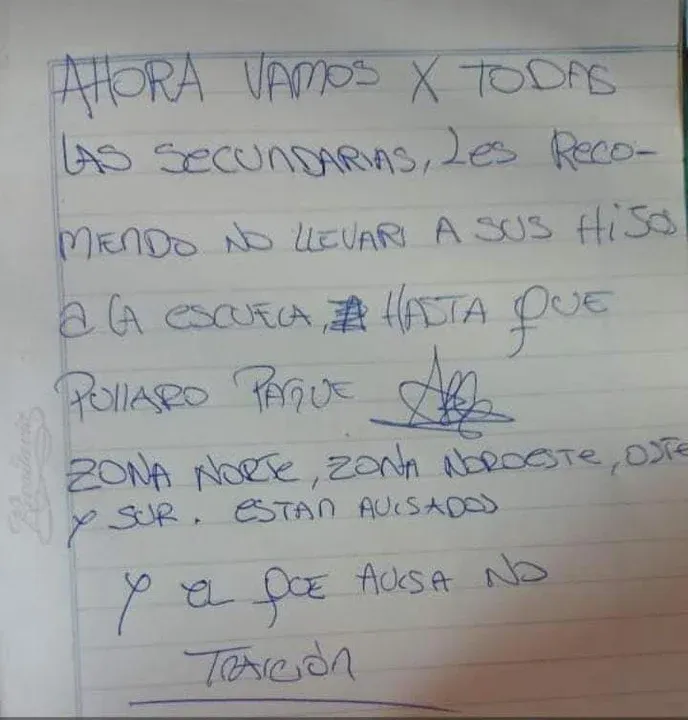 AHORA VAMOS X TODAS
LAS SECUNDARIAS, LES RECO-
MIENDO NO LLEVAR A SUS HIJOS
A LA ESCUELA, HASTA QUE
PULLARO PAGUE
ZONA NORTE, ZONA NOROESTE, OESTE
Y SUR. ESTAN AVISADOS
Y EL QUE AVISA NO
TRAICIÓN